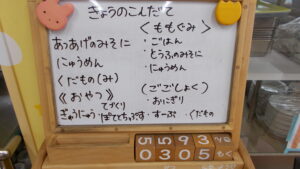 きょうのこんだて
あつあげのみそに
にゅうめん
くだもの(み)
《おやつ》
てづくり
ぎゅうにゅう・ぽてとちっぷす・すーぷ・くだもの
〈ももぐみ〉
・ごはん
・とうふのみそに
にゅうめん
(ごごしょく)
・おにぎり
5 5 9 3
0 3 0 5 もく